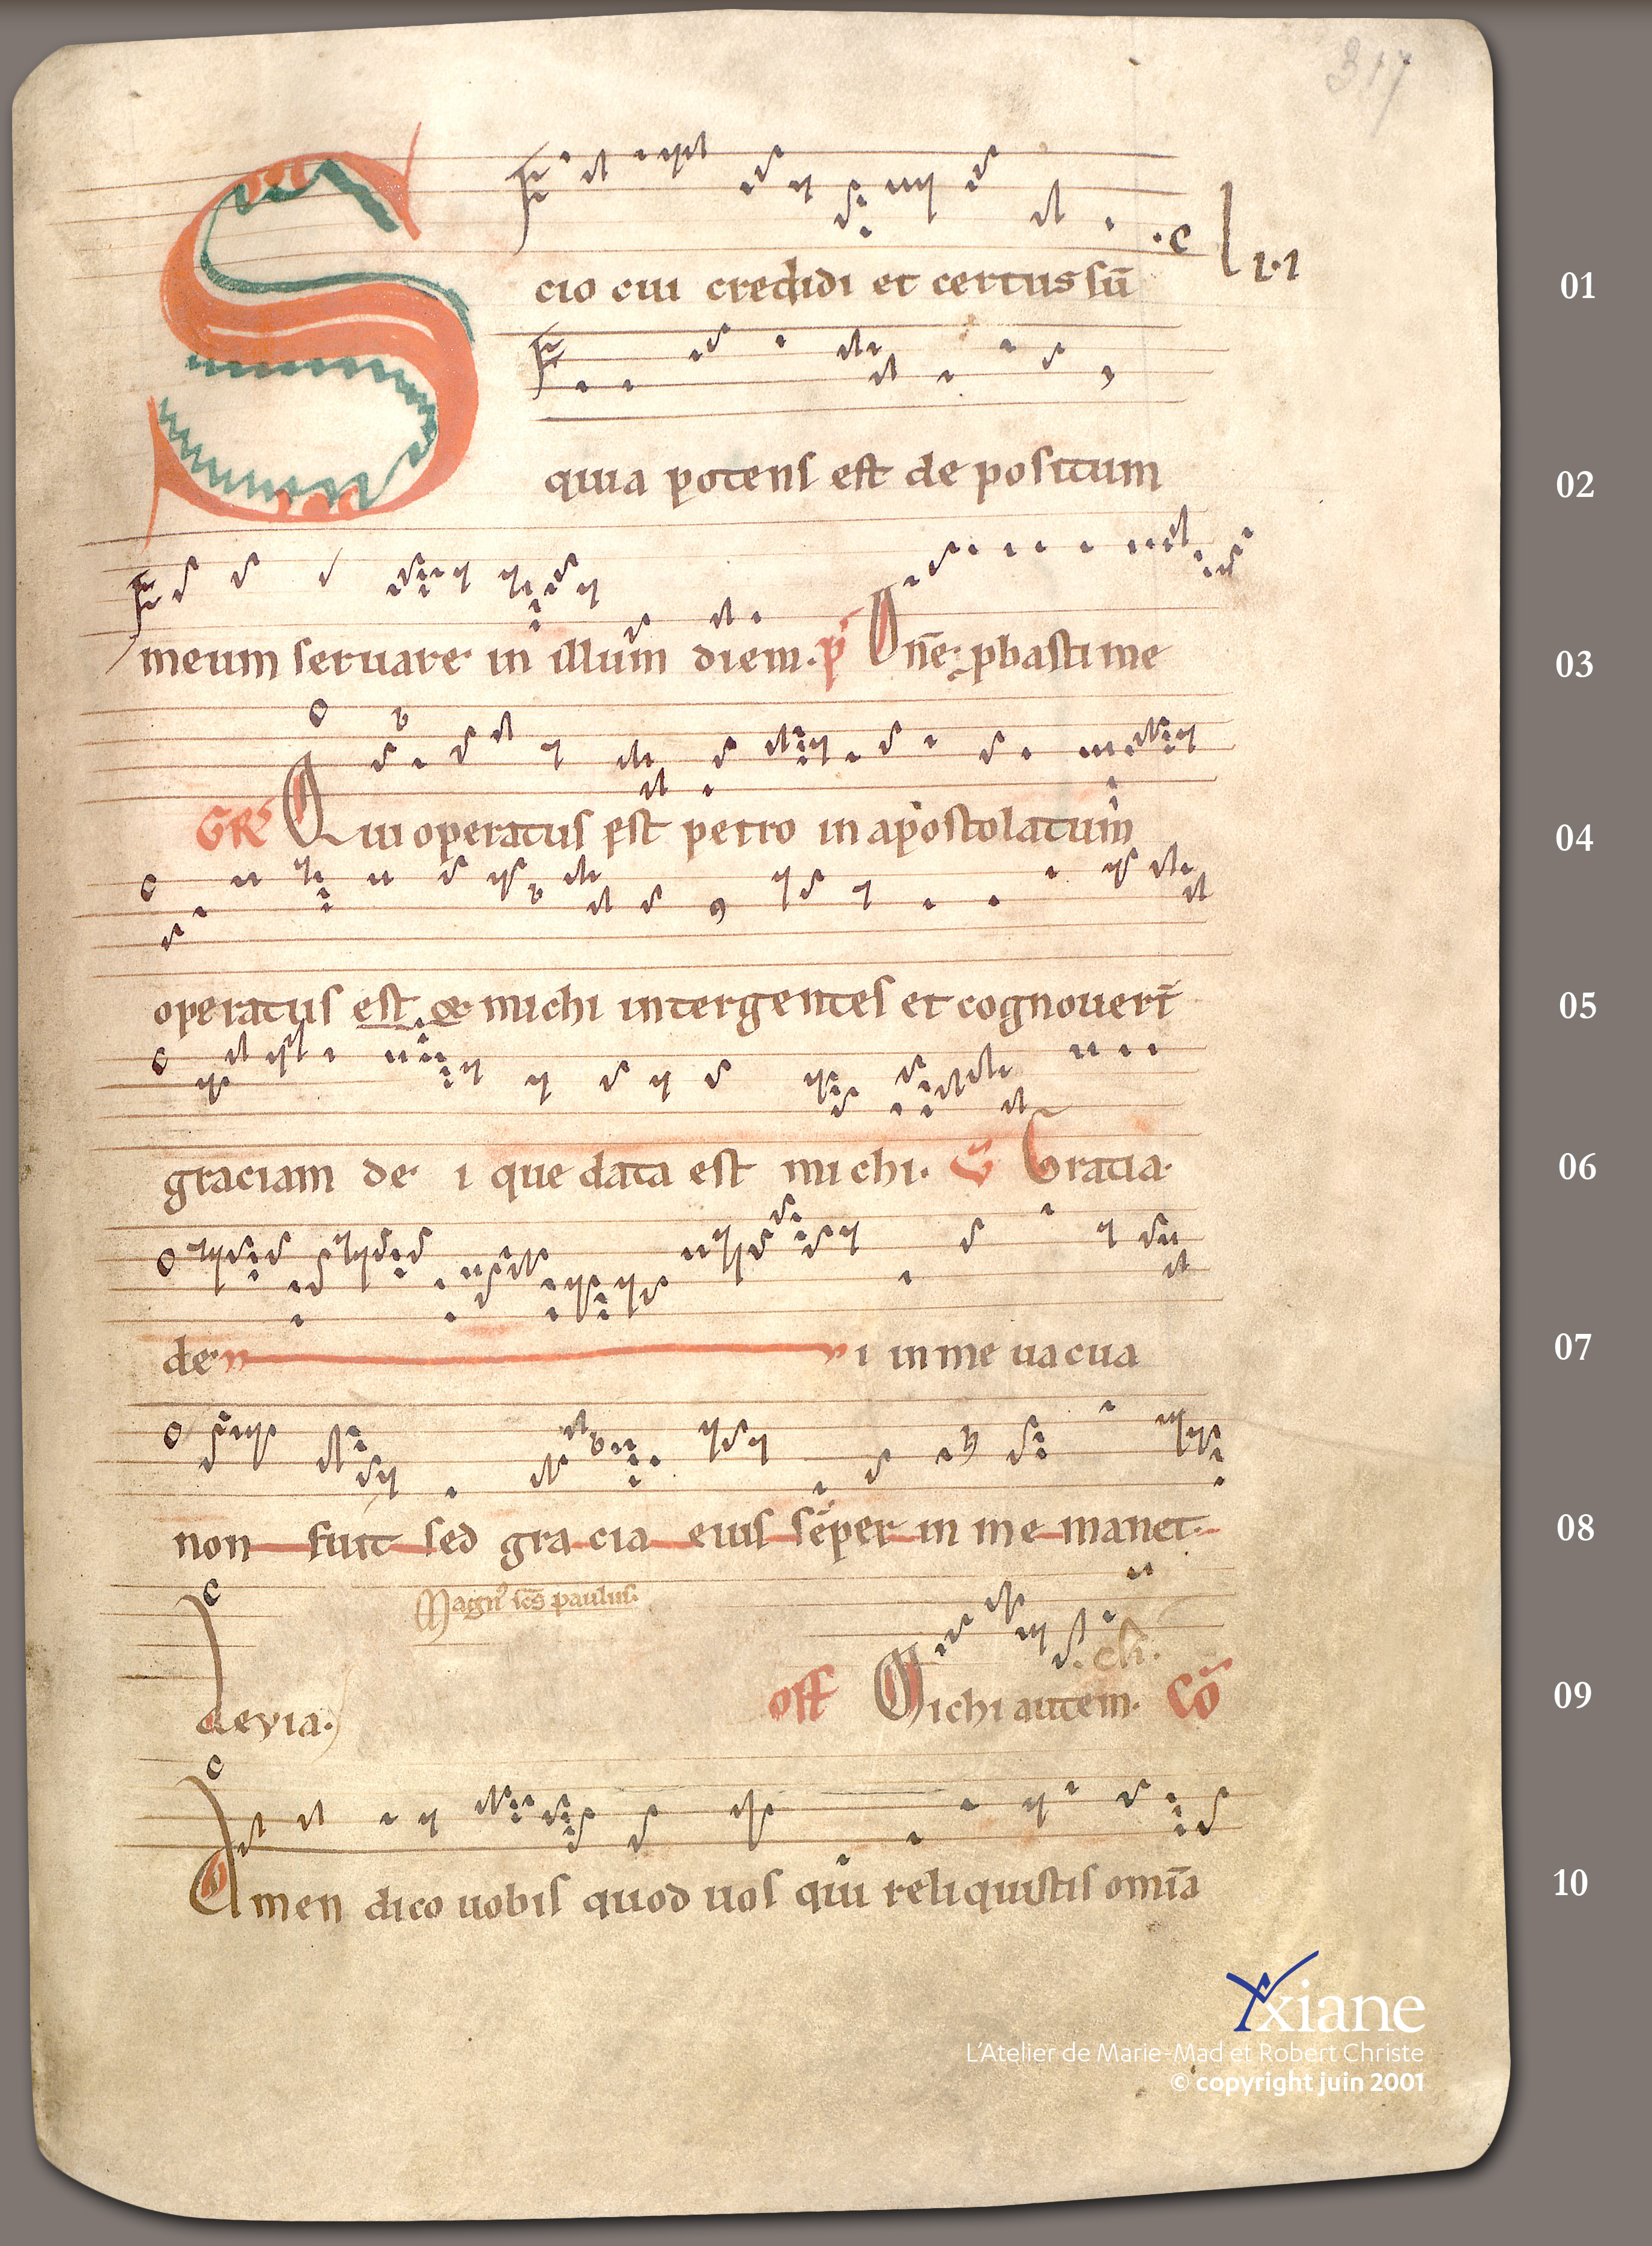 317
Scio cui credidi et certus sū
.c l 1·1
01
quia potens est de positum
02
meum seruare in illum diem. p̄ Dn̄e pbasti me
03
GR̄ Qui operatus est petro in apostolatum
04
operatus est & michi intergentes et cognouer̄t
05
graciam de i que data est michi. V̄ Gratia
06
de i in me uacua
07
non fuit sed gra cia eius sēper in me manet.
08
c
Magn᾽ sc̄s paulus.
aeuia. off Michi autem. cħ. Cō
09
c
Amen dico uobis quod uos qui reliquistis omīa
10
Yxiane
L'Atelier de Marie-Mad et Robert Christe
© copyright juin 2001